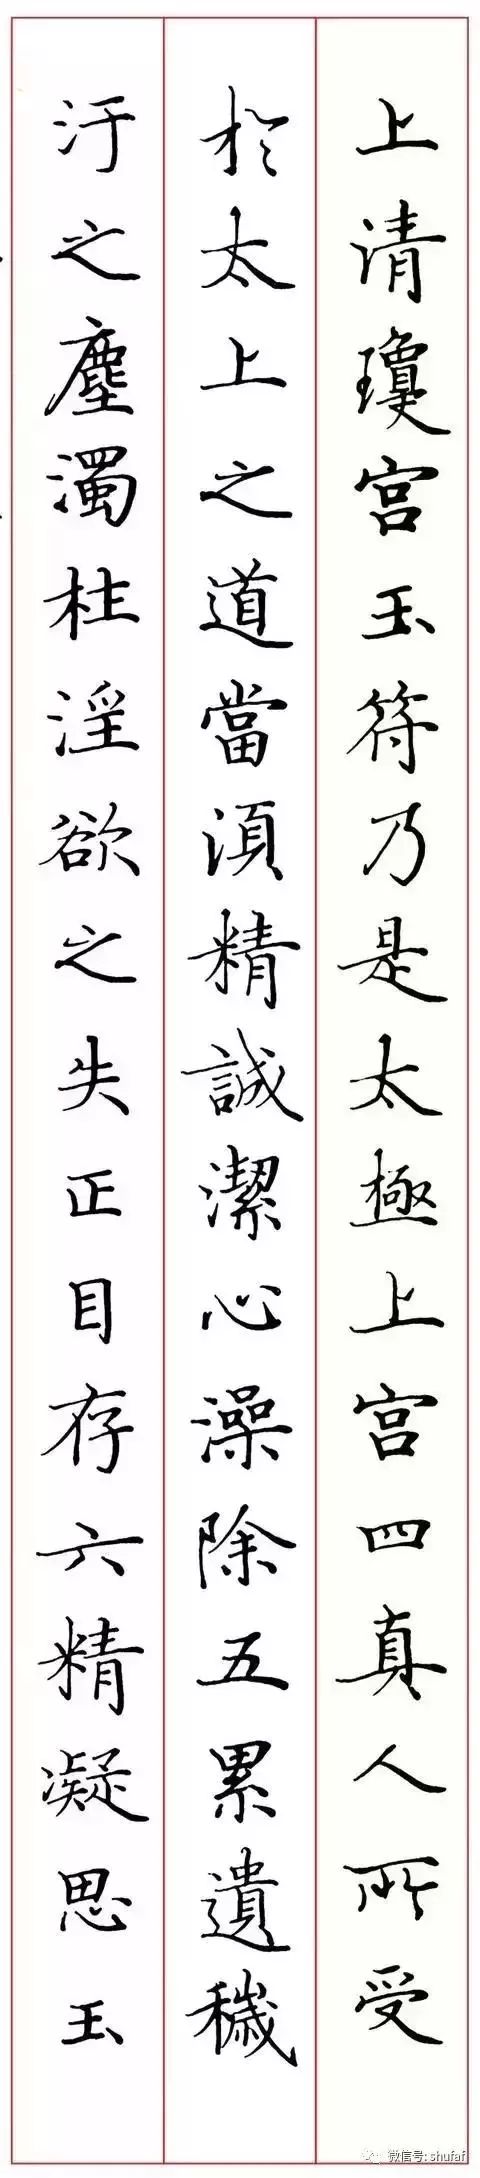 上清瓊宮玉符乃是太極上宮四真人所受
於太上之道當須精誠潔心澡除五累遺穢
汙之塵濁杜淫欲之失正目存六精凝思玉
微信号: shufaf